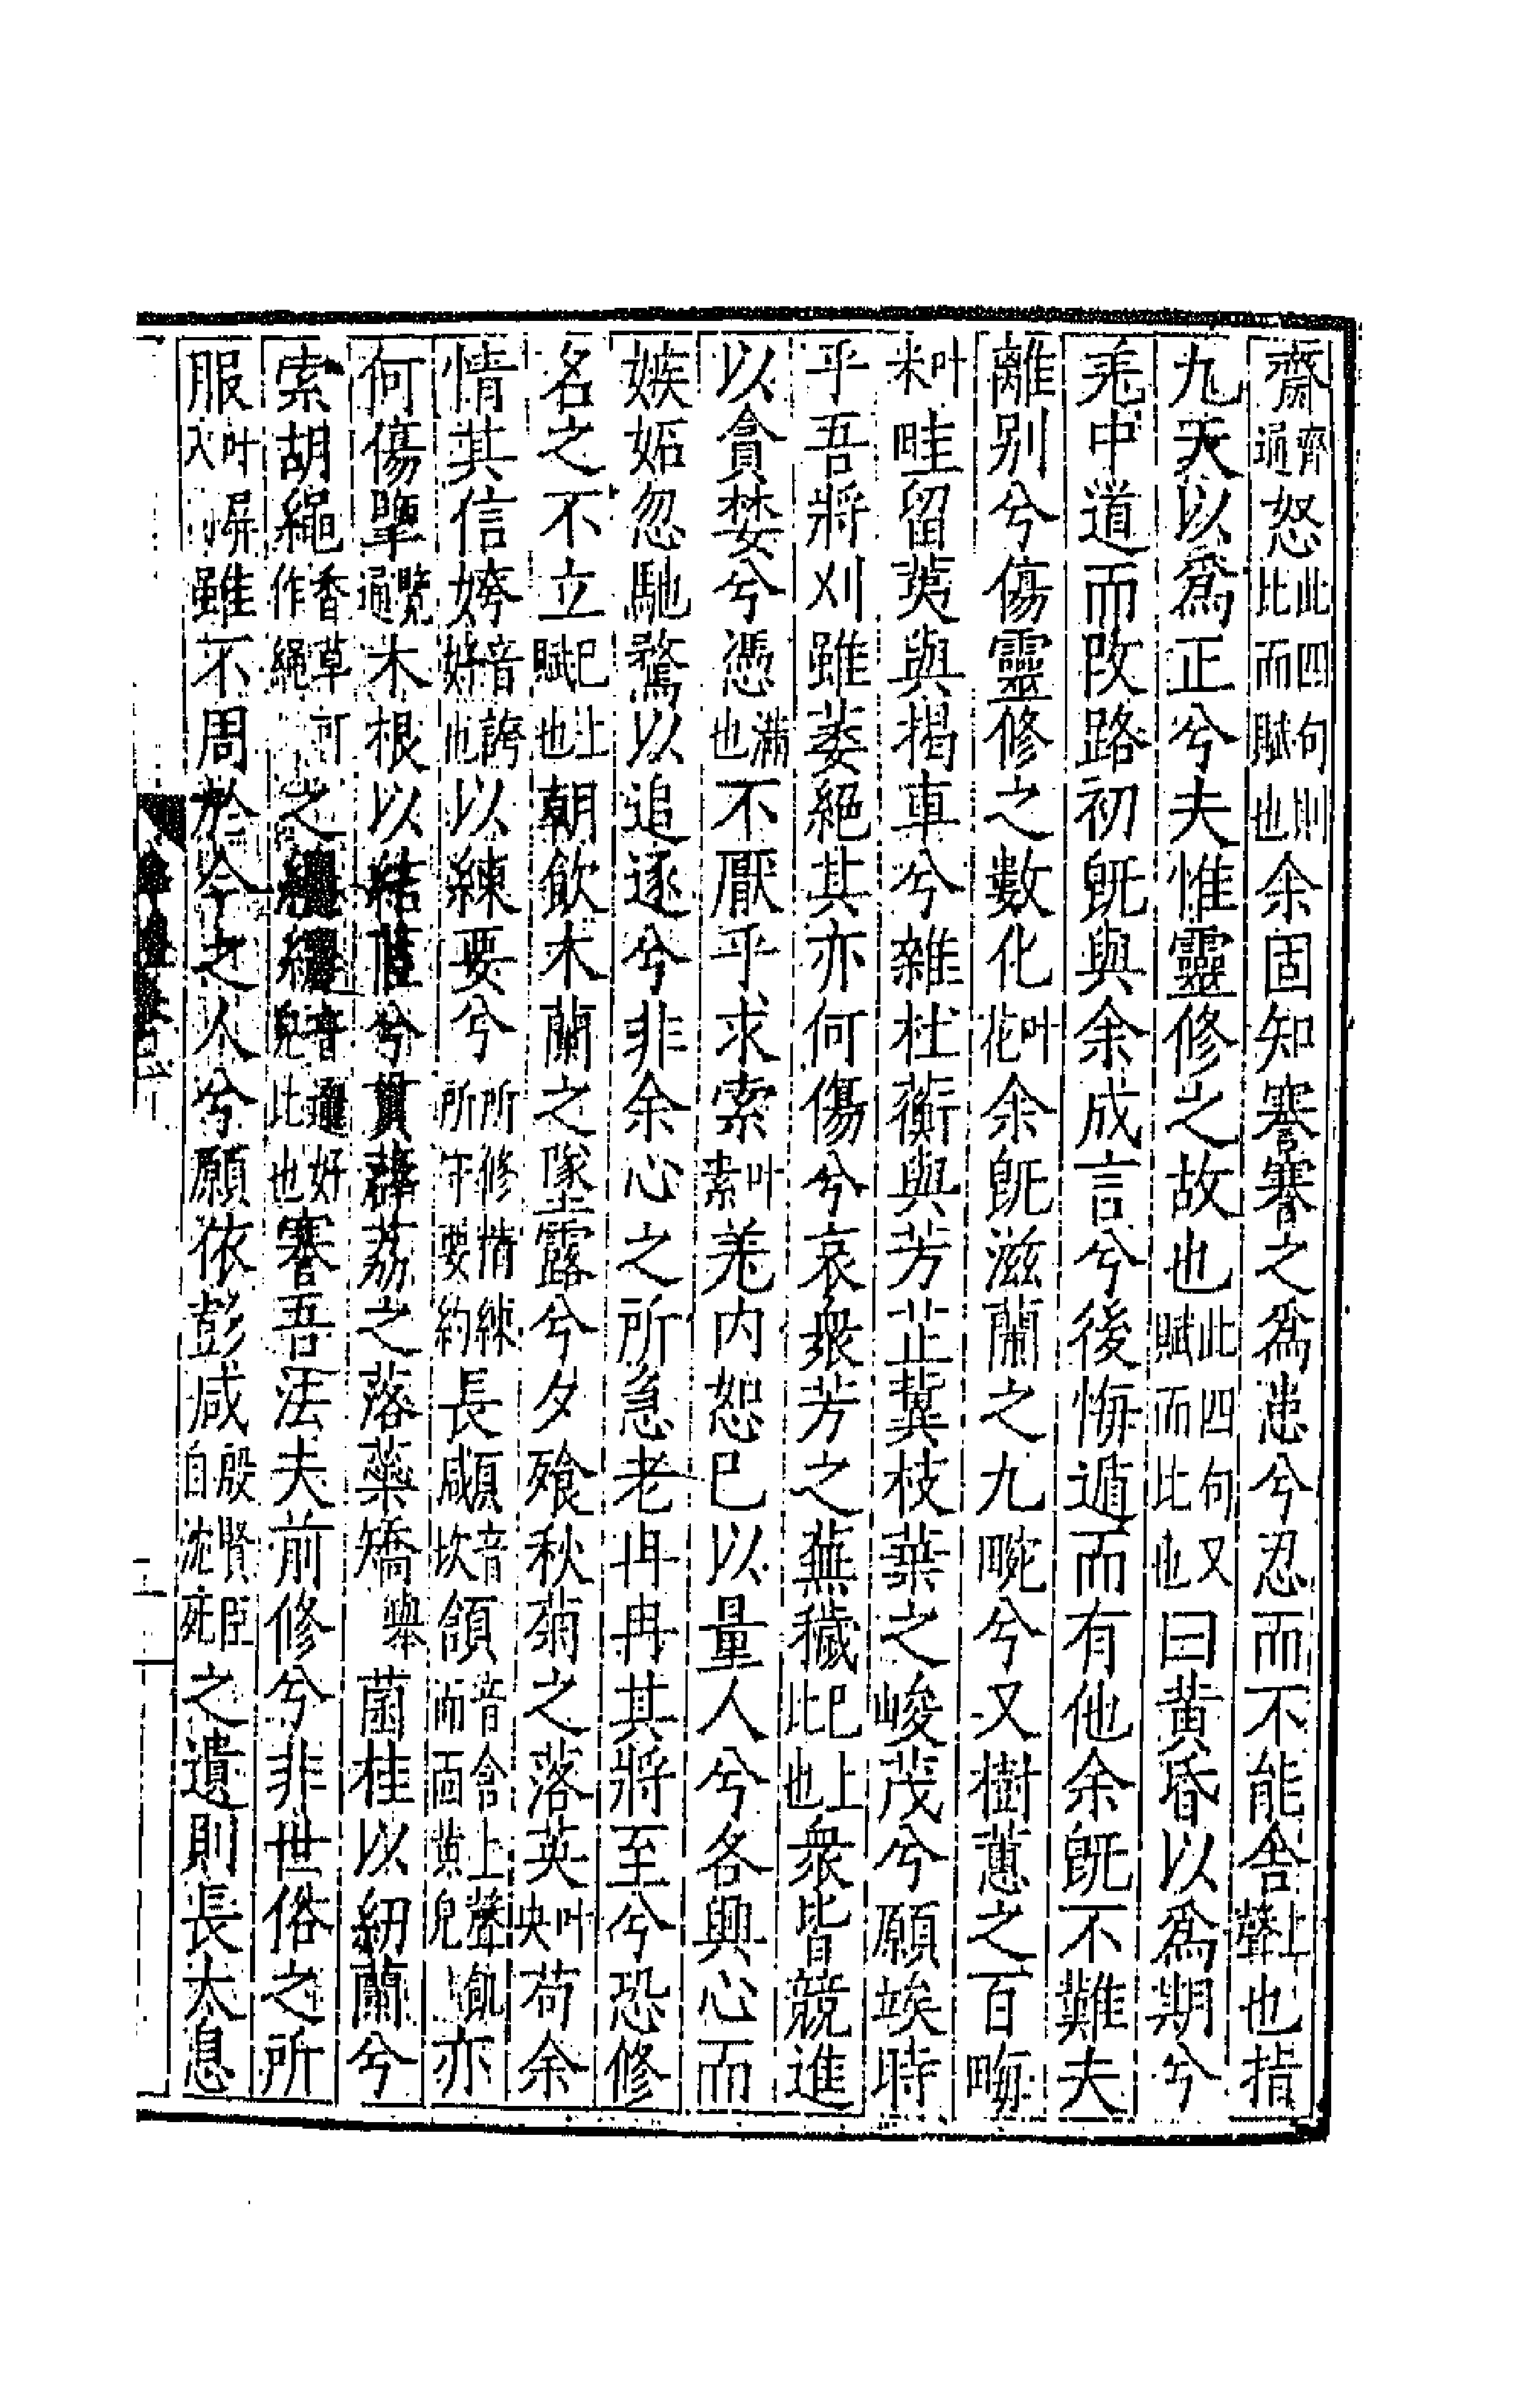 齌齊通怒此四句則比而賦也余固知謇謇之爲患兮忍而不能舍上聲也指
九天以爲正兮夫惟靈修之故也此四句又賦而比也曰黃昏以爲期兮
羌中道而改路初旣與余成言兮後悔遁而有他余旣不難夫
離别兮傷靈修之數化叶花余旣滋蘭之九畹兮又樹蕙之百畮
叶米畦留荑與揭車兮雜杜蘅與芳芷冀枝葉之峻茂兮願竢時
乎吾將刈雖萎絕其亦何傷兮哀衆芳之蕪穢巳上比也衆皆競進
以貪婪兮憑滿也不厭乎求索叶素羌内恕巳以量人兮各興心而
嫉妬忽馳騖以追逐兮非余心之所急老冉冉其將至兮恐修
名之不立巳上賦也朝飲木蘭之墜露兮夕飱秋菊之落英叶央苟余
情其信姱音誇好也以練要兮所修精練所守要約長顑音坎頷音含上聲顑頷亦
何傷擥覽通木根以結茝兮貫薜荔之落蘂矯舉菌桂以紉蘭兮
索胡繩香草可作繩之纚纚音邐好皃此也謇吾法夫前修兮非世俗之所
服叶屏入雖不周於今之人兮願依彭咸殷賢臣自沈死之遺則長太息